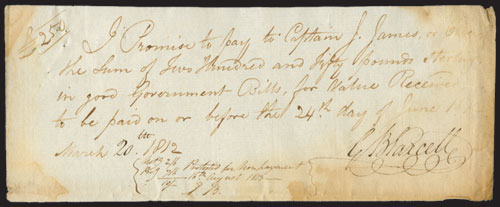 £250
I Promise to pay to Captain J. James, or Order
the Sum of Two Hundred and fifty pounds Sterling
in good Government Bills, for Value Received
to be paid on or before the 24th day of June
March 20th 1812
Protested for Nonpayment
16th August 1813